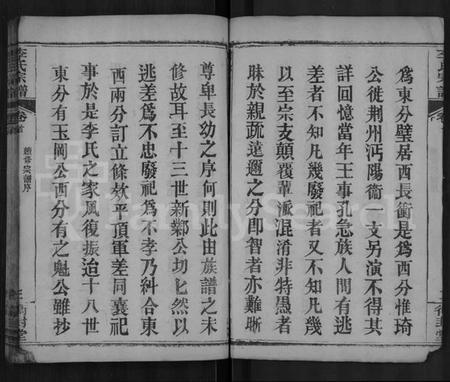 為東分璧居西長衝是為西分惟琦
公徙荆州沔陽衞一支另演不得其
詳回憶當年王事孔急族人間有逃
差者不知凡幾廢祀者又不知凡幾
以至宗支顛覆華派混淆非特愚者
昧於親疏遠邇之分即智者亦難晰
尊卑長幼之序何則此由族譜之未
修故耳至十三世新鄰公切匕然以
逃差為不忠廢祀為不孝乃糾合東
西兩分訂立條欵平頂軍差同襄祀
事於是李氏之家風復振迨十八世
東分有玉岡公西分有之魁公雖抄
李氏宗譜
卷首
譜序